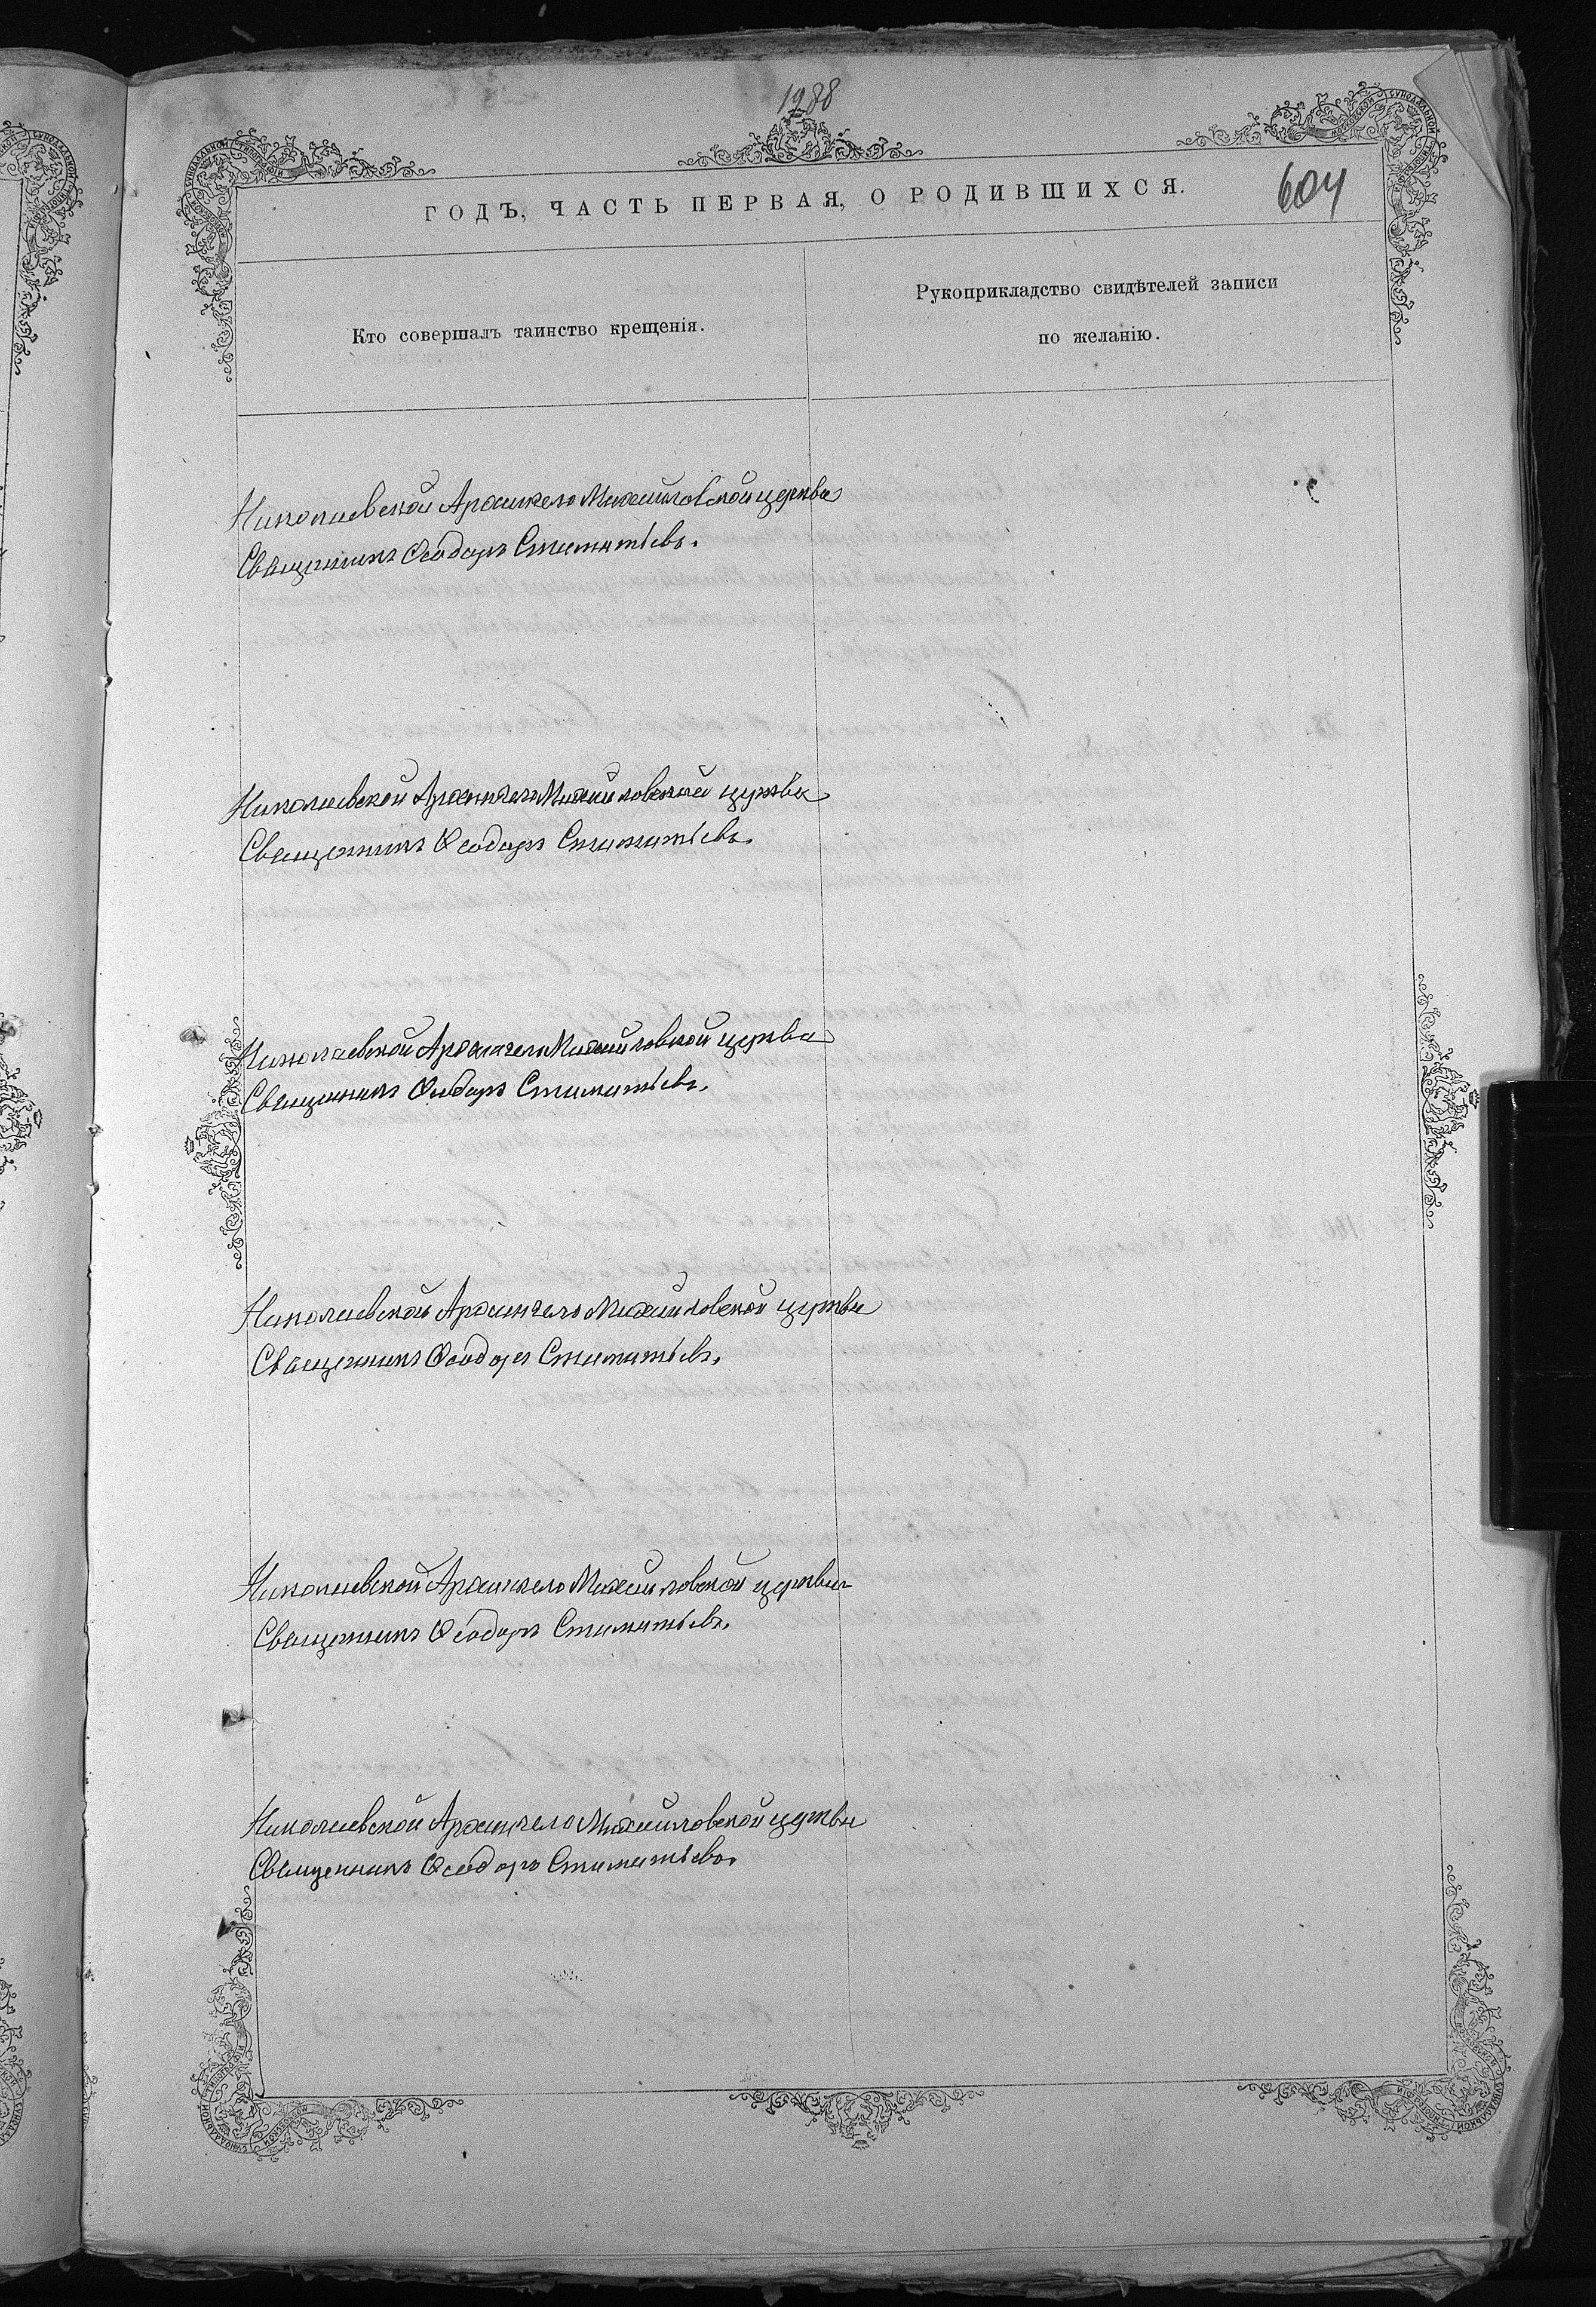 1288
604
ГОДЪ, ЧАСТЬ ПЕРВАЯ, О РОДИВШИХСЯ.
Кто совершалъ таинство крещенія.
Рукоприкладство свидѣтелей записи
по желанію.
Николаевской Архангело Михайловской церкви
Священникъ Ѳеодоръ Стаматьевъ.
Николаевской Архангело Михайловской церкви
Священникъ Ѳеодоръ Стаматьевъ.
Николаевской Архангело Михайловской церкви
Священникъ Ѳеодоръ Стаматьевъ.
Николаевской Архангело Михайловской церкви
Священникъ Ѳеодоръ Стаматьевъ.
Николаевской Архангело Михайловской церкви
Священникъ Ѳеодоръ Стаматьевъ.
Николаевской Архангело Михайловской церкви
Священникъ Ѳеодоръ Стаматьевъ.